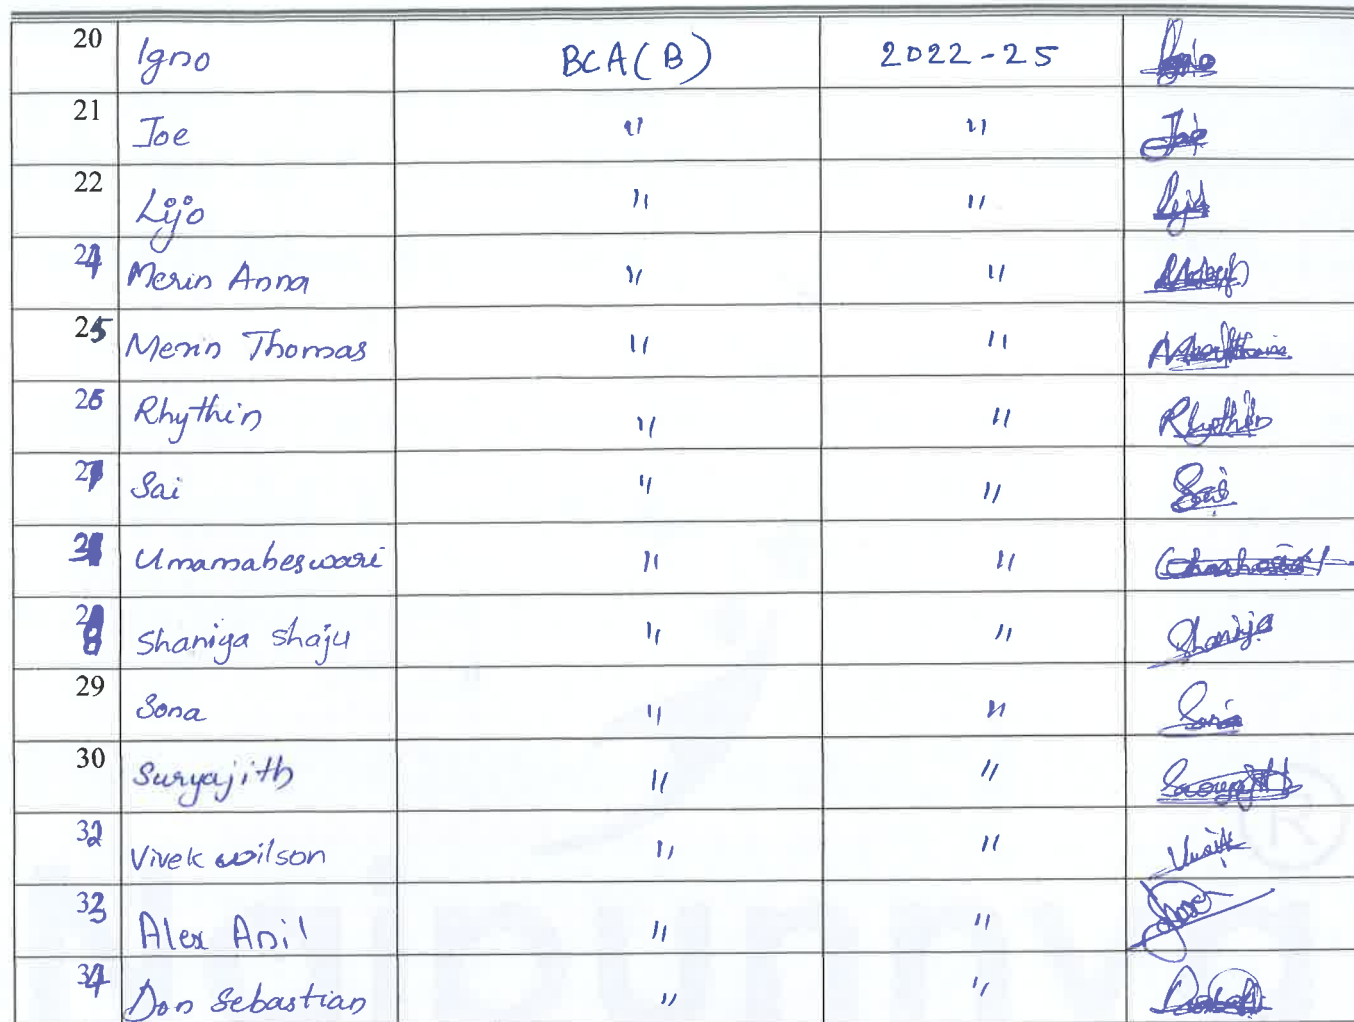 20 Igno BCA(B) 2022-25 Igno
21 Joe " " Joe
22 Lijo " " Lijo
24 Merin Anna " "
25 Merin Thomas " "
26 Rhythin " " Rhythin
27 Sai " " Sai
Umamabeswari " "
28 Shaniya Shaju " " Shaniya
29 Sona " " Sona
30 Suryajith " " Suryajith
32 Vivek wilson " " Vivek
33 Alex Anil " "
34 Don Sebastian " "
®